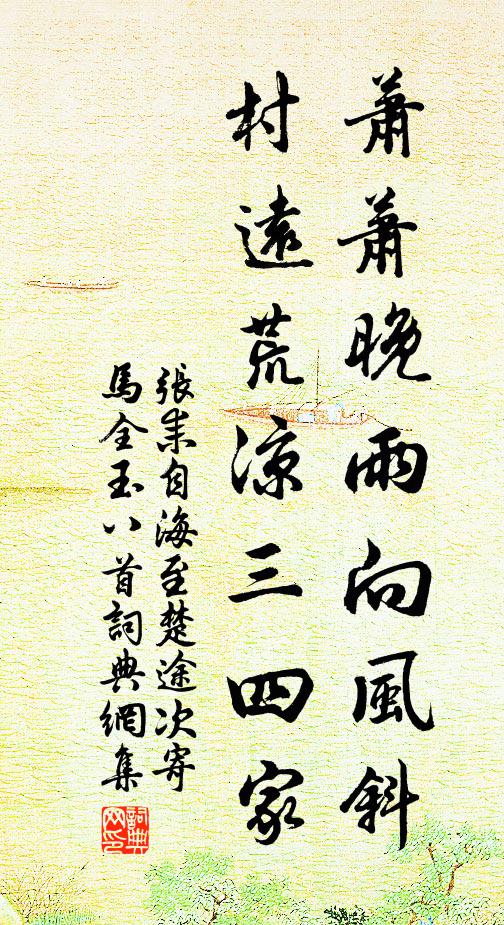 蕭蕭晚雨向風斜
村遠荒涼三四家
張耒自海至楚途次寄
馬全玉八首詞典網集
詞典
网印